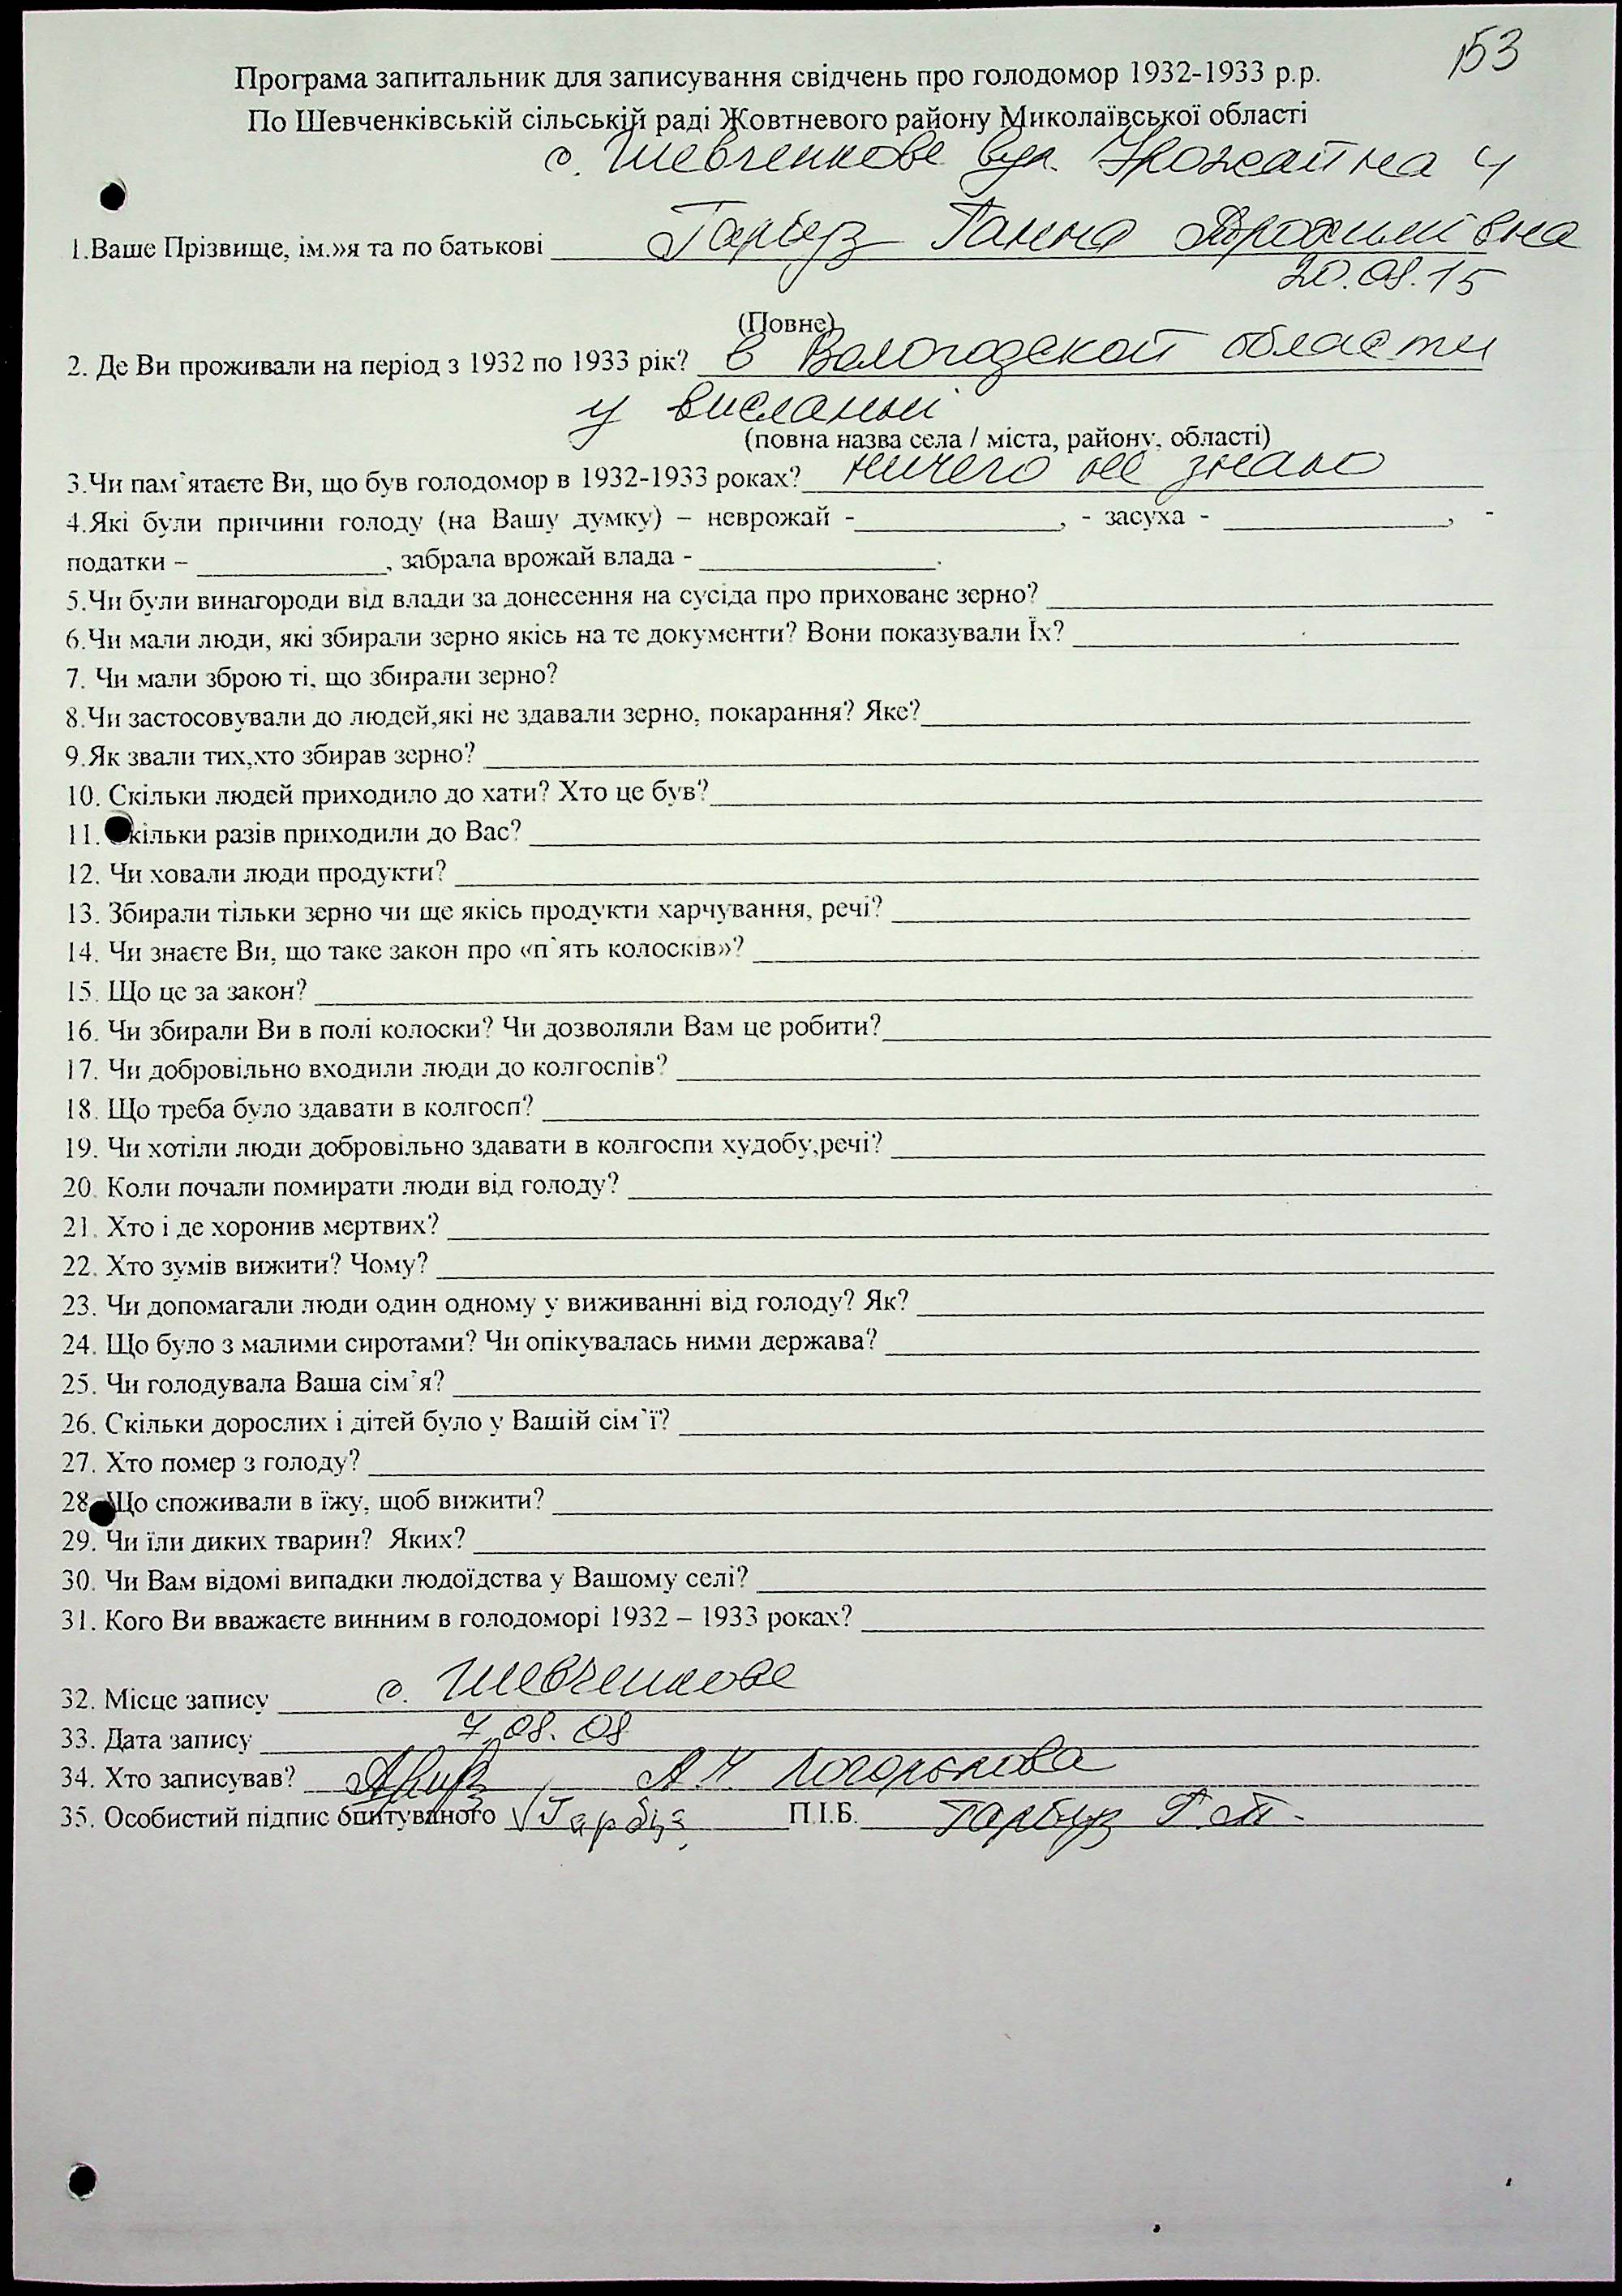 153
Програма запитальник для записування свідчень про голодомор 1932-1933 р.р.
По Шевченківській сільській раді Жовтневого району Миколаївської області
с. Шевченкове вул. Урожайна 4
1.Ваше Прізвище, ім.»я та по батькові Гарбуз Ганна
20.08.15
(Повне)
2. Де Ви проживали на період з 1932 по 1933 рік? в Вологодской области
у висланьі
(повна назва села / міста, району, області)
3.Чи пам`ятаєте Ви, що був голодомор в 1932-1933 роках? ничего не знаю
4.Які були причини голоду (на Вашу думку) – неврожай -____________, - засуха - ____________, -
податки – ____________, забрала врожай влада - ____________.
5.Чи були винагороди від влади за донесення на сусіда про приховане зерно?
6.Чи мали люди, які збирали зерно якісь на те документи? Вони показували Їх?
7. Чи мали зброю ті, що збирали зерно?
8.Чи застосовували до людей,які не здавали зерно, покарання? Яке?
9.Як звали тих,хто збирав зерно?
10. Скільки людей приходило до хати? Хто це був?
11. кільки разів приходили до Вас?
12. Чи ховали люди продукти?
13. Збирали тільки зерно чи ще якісь продукти харчування, речі?
14. Чи знаєте Ви, що таке закон про «п`ять колосків»?
15. Що це за закон?
16. Чи збирали Ви в полі колоски? Чи дозволяли Вам це робити?
17. Чи добровільно входили люди до колгоспів?
18. Що треба було здавати в колгосп?
19. Чи хотіли люди добровільно здавати в колгоспи худобу,речі?
20. Коли почали помирати люди від голоду?
21. Хто і де хоронив мертвих?
22. Хто зумів вижити? Чому?
23. Чи допомагали люди один одному у виживанні від голоду? Як?
24. Що було з малими сиротами? Чи опікувалась ними держава?
25. Чи голодувала Ваша сім`я?
26. Скільки дорослих і дітей було у Вашій сім`ї?
27. Хто помер з голоду?
28. Що споживали в їжу, щоб вижити?
29. Чи їли диких тварин? Яких?
30. Чи Вам відомі випадки людоїдства у Вашому селі?
31. Кого Ви вважаєте винним в голодоморі 1932 – 1933 роках?
32. Місце запису с. Шевченкове
33. Дата запису 7.08.08
34. Хто записував?
35. Особистий підпис опитуваного Гарбуз П.І.Б. Гарбуз Г.